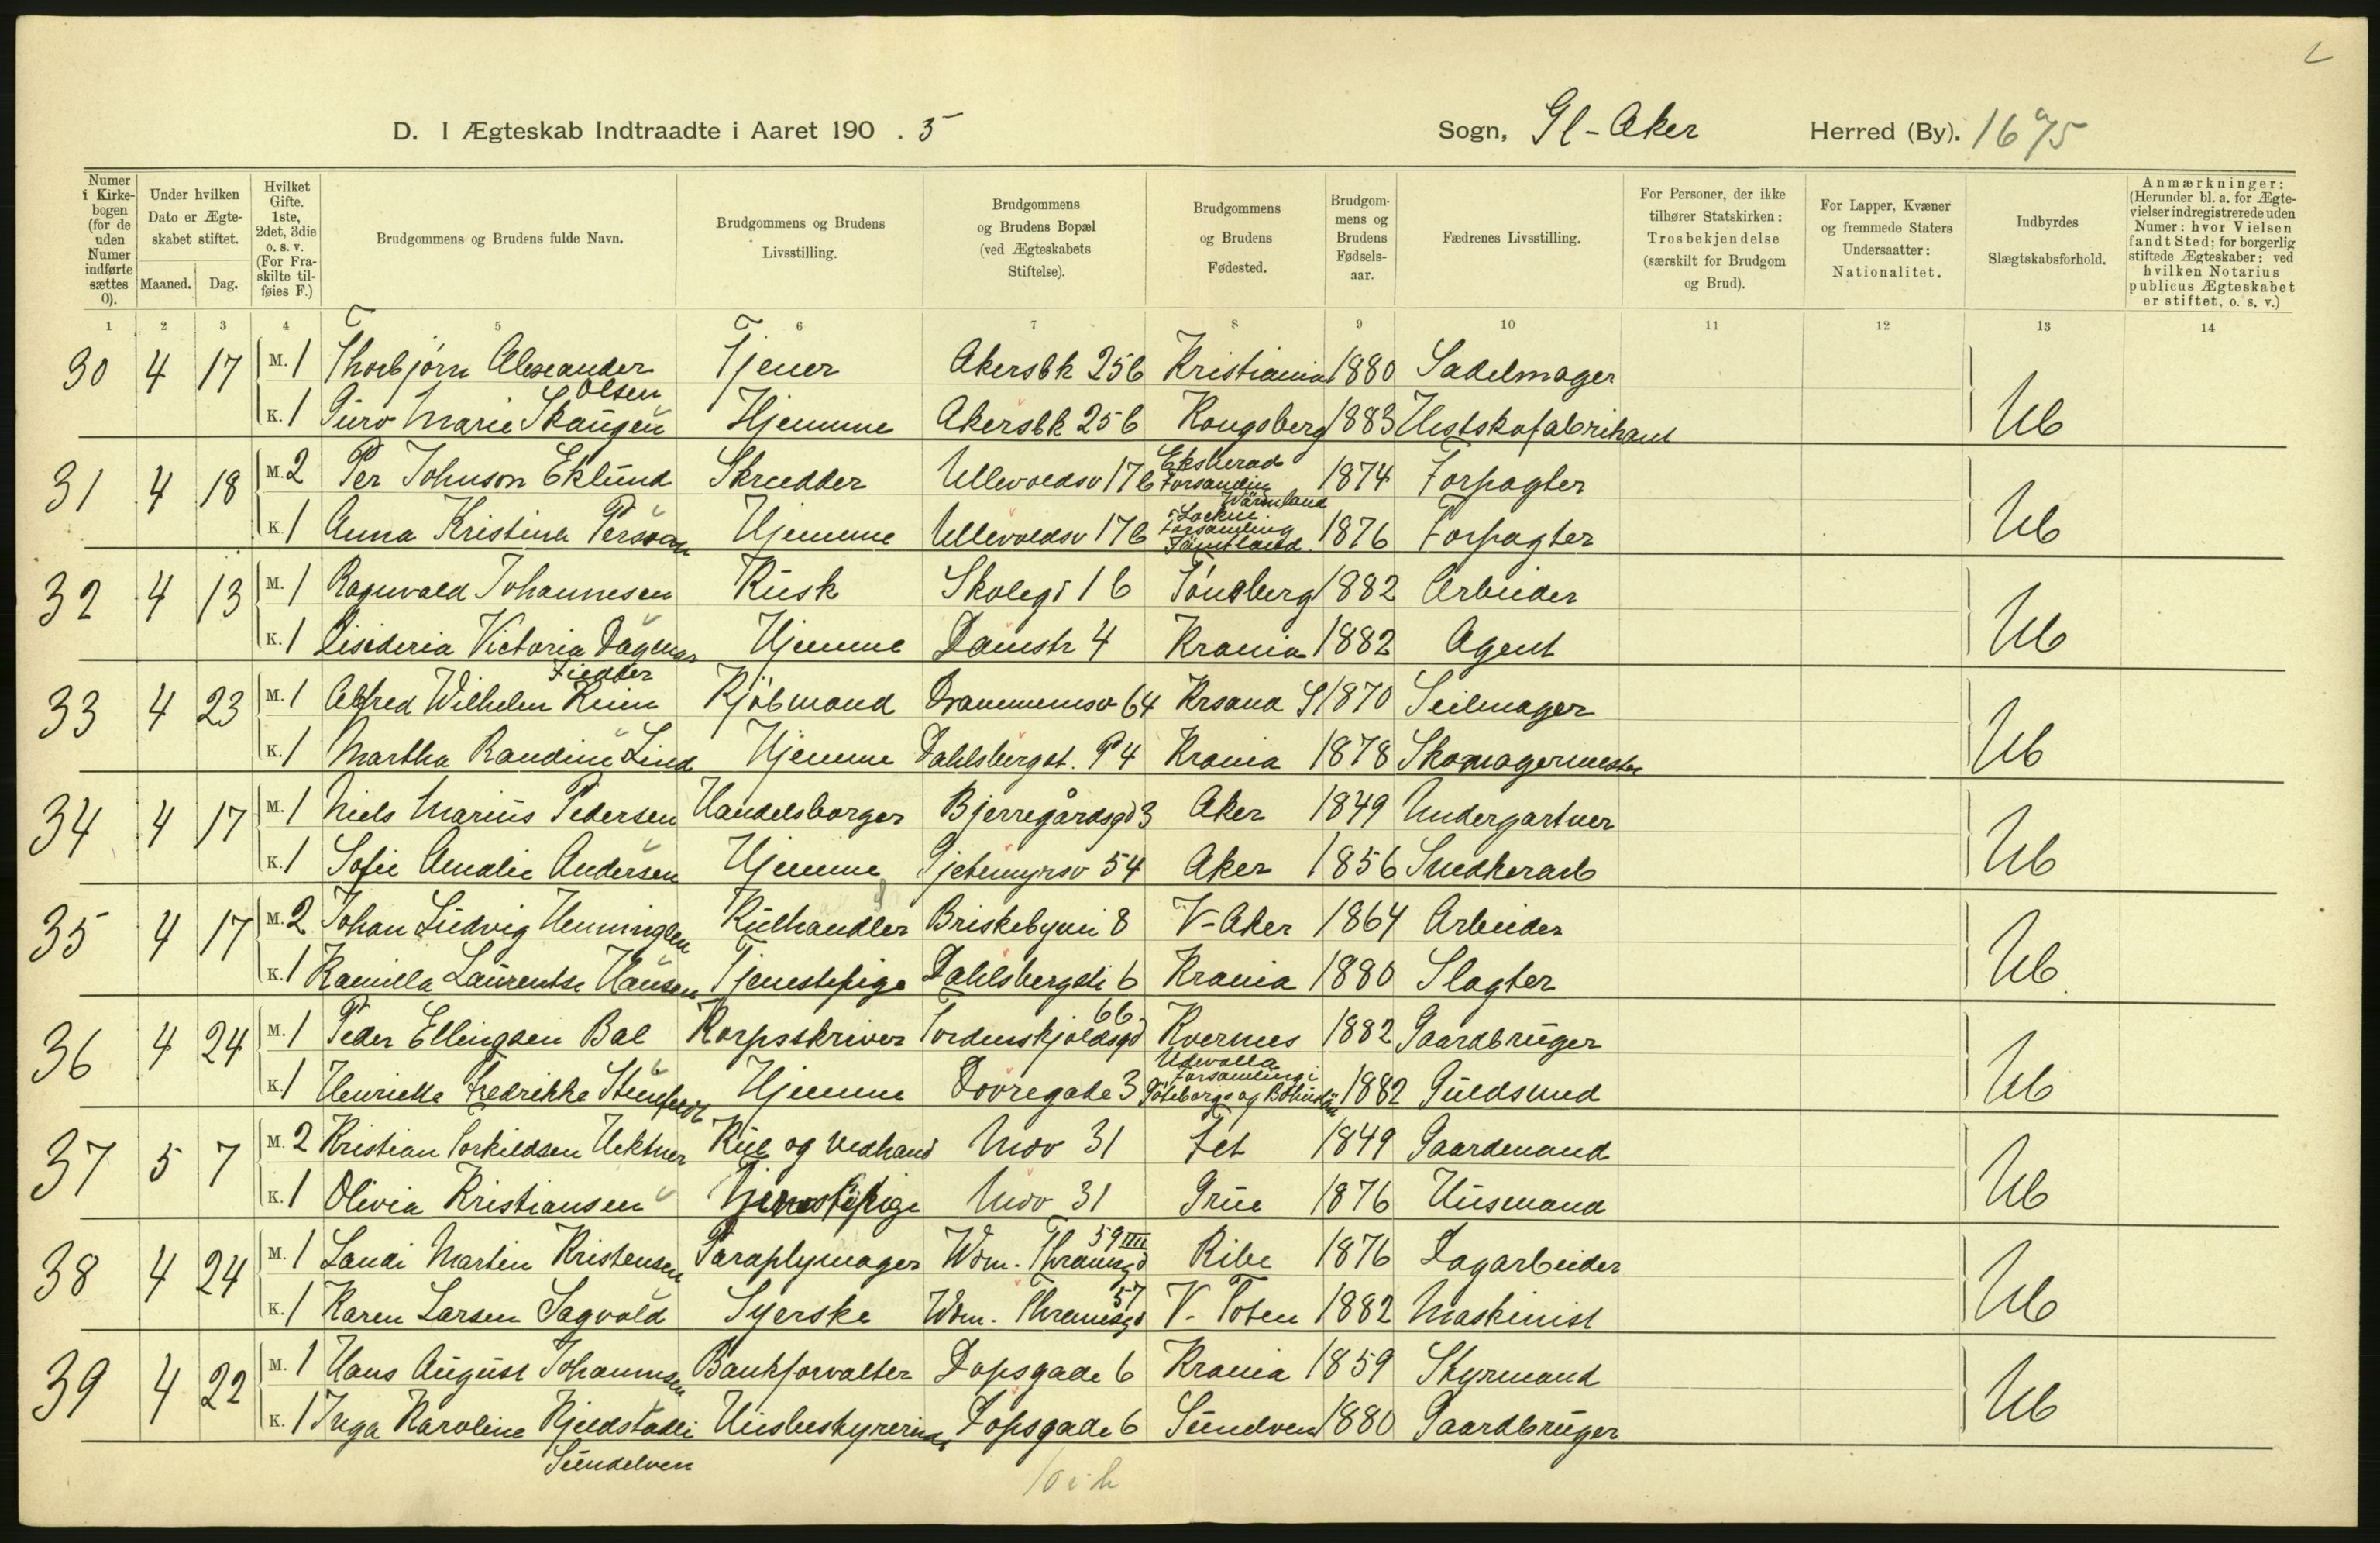 D. I Ægteskab Indtraadte i Aaret 190 . 5 Sogn, Gl-Aker Herred (By). 1675
Numer i Kirke-bogen (for de uden Numer indførte sættes 0). Under hvilken Dato er Ægte-skabet stiftet. Maaned. Dag. Hvilket Gifte. 1ste, 2det, 3die o. s. v. (For Fra-skilte til-føies F.) Brudgommens og Brudens fulde Navn. Brudgommens og Brudens Livsstilling. Brudgommens og Brudens Bopæl (ved Ægteskabets Stiftelse). Brudgommens og Brudens Fødested. Brudgom-mens og Brudens Fødsels-aar. Fædrenes Livsstilling. For Personer, der ikke tilhører Statskirken: Trosbekjendelse (særskilt for Brudgom og Brud). For Lapper, Kvæner og fremmede Staters Undersaatter: Nationalitet. Indbyrdes Slægtskabsforhold. Anmærkninger: (Herunder bl. a. for Ægte-vielser indregistrerede uden Numer: hvor Vielsen fandt Sted; for borgerlig stiftede Ægteskaber: ved hvilken Notarius publicus Ægteskabet er stiftet, o. s. v.)
1 2 3 4 5 6 7 8 9 10 11 12 13 14
30 4 17 M. 1 Thorbjørn Alexander Olsen Tjener Akersbk 25b Kristiania 1880 Sadelmager Ub
K. 1 Guro Marie Skaugen Hjemme Akersbk 25b Kongsberg 1883 Hestskofabrikant
31 4 18 M. 2 Per Johnson Eklund Skrædder Ullevoldsv 17b Eksherad Forsamlin Wärmland 1874 Forpagter Ub
K. 1 Anna Kristina Persson Hjemme Ullevoldsv 17b Lockne Forsamling Jämtland 1876 Forpagter
32 4 13 M. 1 Ragnvald Johannesen Kusk Skolegd 1b Tønsberg 1882 Arbeider Ub
K. 1 Disideria Victoria Dagmar Fiedler Hjemme Damstr 4 Krania 1882 Agent
33 4 23 M. 1 Alfred Wilhelm Kiim Kjøbmand Drammensv 64 Krsand S 1870 Seilmager Ub
K. 1 Martha Randine Lind Hjemme Dahlsbergst. P 4 Krania 1878 Skomagermester
34 4 17 M. 1 Niels Marius Pedersen Handelsborger Bjerregårdsgd 3 Aker 1849 Undergartner Ub
K. 1 Sofie Amalie Andersen Hjemme Gjetemyrsv 54 Aker 1856 Snedkerarb
35 4 17 M. 2 Johan Ludvig Henningsen Kulhandler Briskebyvei 8 V-Aker 1864 Arbeider Ub
K. 1 Kamilla Laurentse Hansen Tjenestepige Dahlsbergsti 6 Krania 1880 Slagter
36 4 24 M. 1 Peder Ellingsen Bal Korpsskriver Tordenskjoldsgd 66 Kvernes 1882 Gaardbruger Ub
K. 1 Henriette Fredrikke Steenfeldt Hjemme Dovregade 3 Udevalla Forsamling i Göteborgs og Bohuslän 1882 Guldsmed
37 5 7 M. 2 Kristian Torkildsen Hektner Kul og Vedhand Mov 31 Fet 1849 Gaardmand Ub
K. 1 Olivia Kristiansen Tjenestepige Mov 31 Grue 1876 Husmand
38 4 24 M. 1 Laudi Martin Kristensen Paraplymager Wm. Thranesgd 59 IIII Ribe 1876 Dagarbeider Ub
K. 1 Karen Larsen Sagvold Syerske Wm. Thranesgd 57 V. Toten 1882 Maskinist
39 4 22 M. 1 Hans August Johannesen Bankforvalter Dopsgade 6 Krania 1859 Styrmand Ub
K. 1 Inga Karoline Kjeldstadli Sundelven Husbestyrerinde Dopsgade 6 Sundven 1880 Gaardbruger